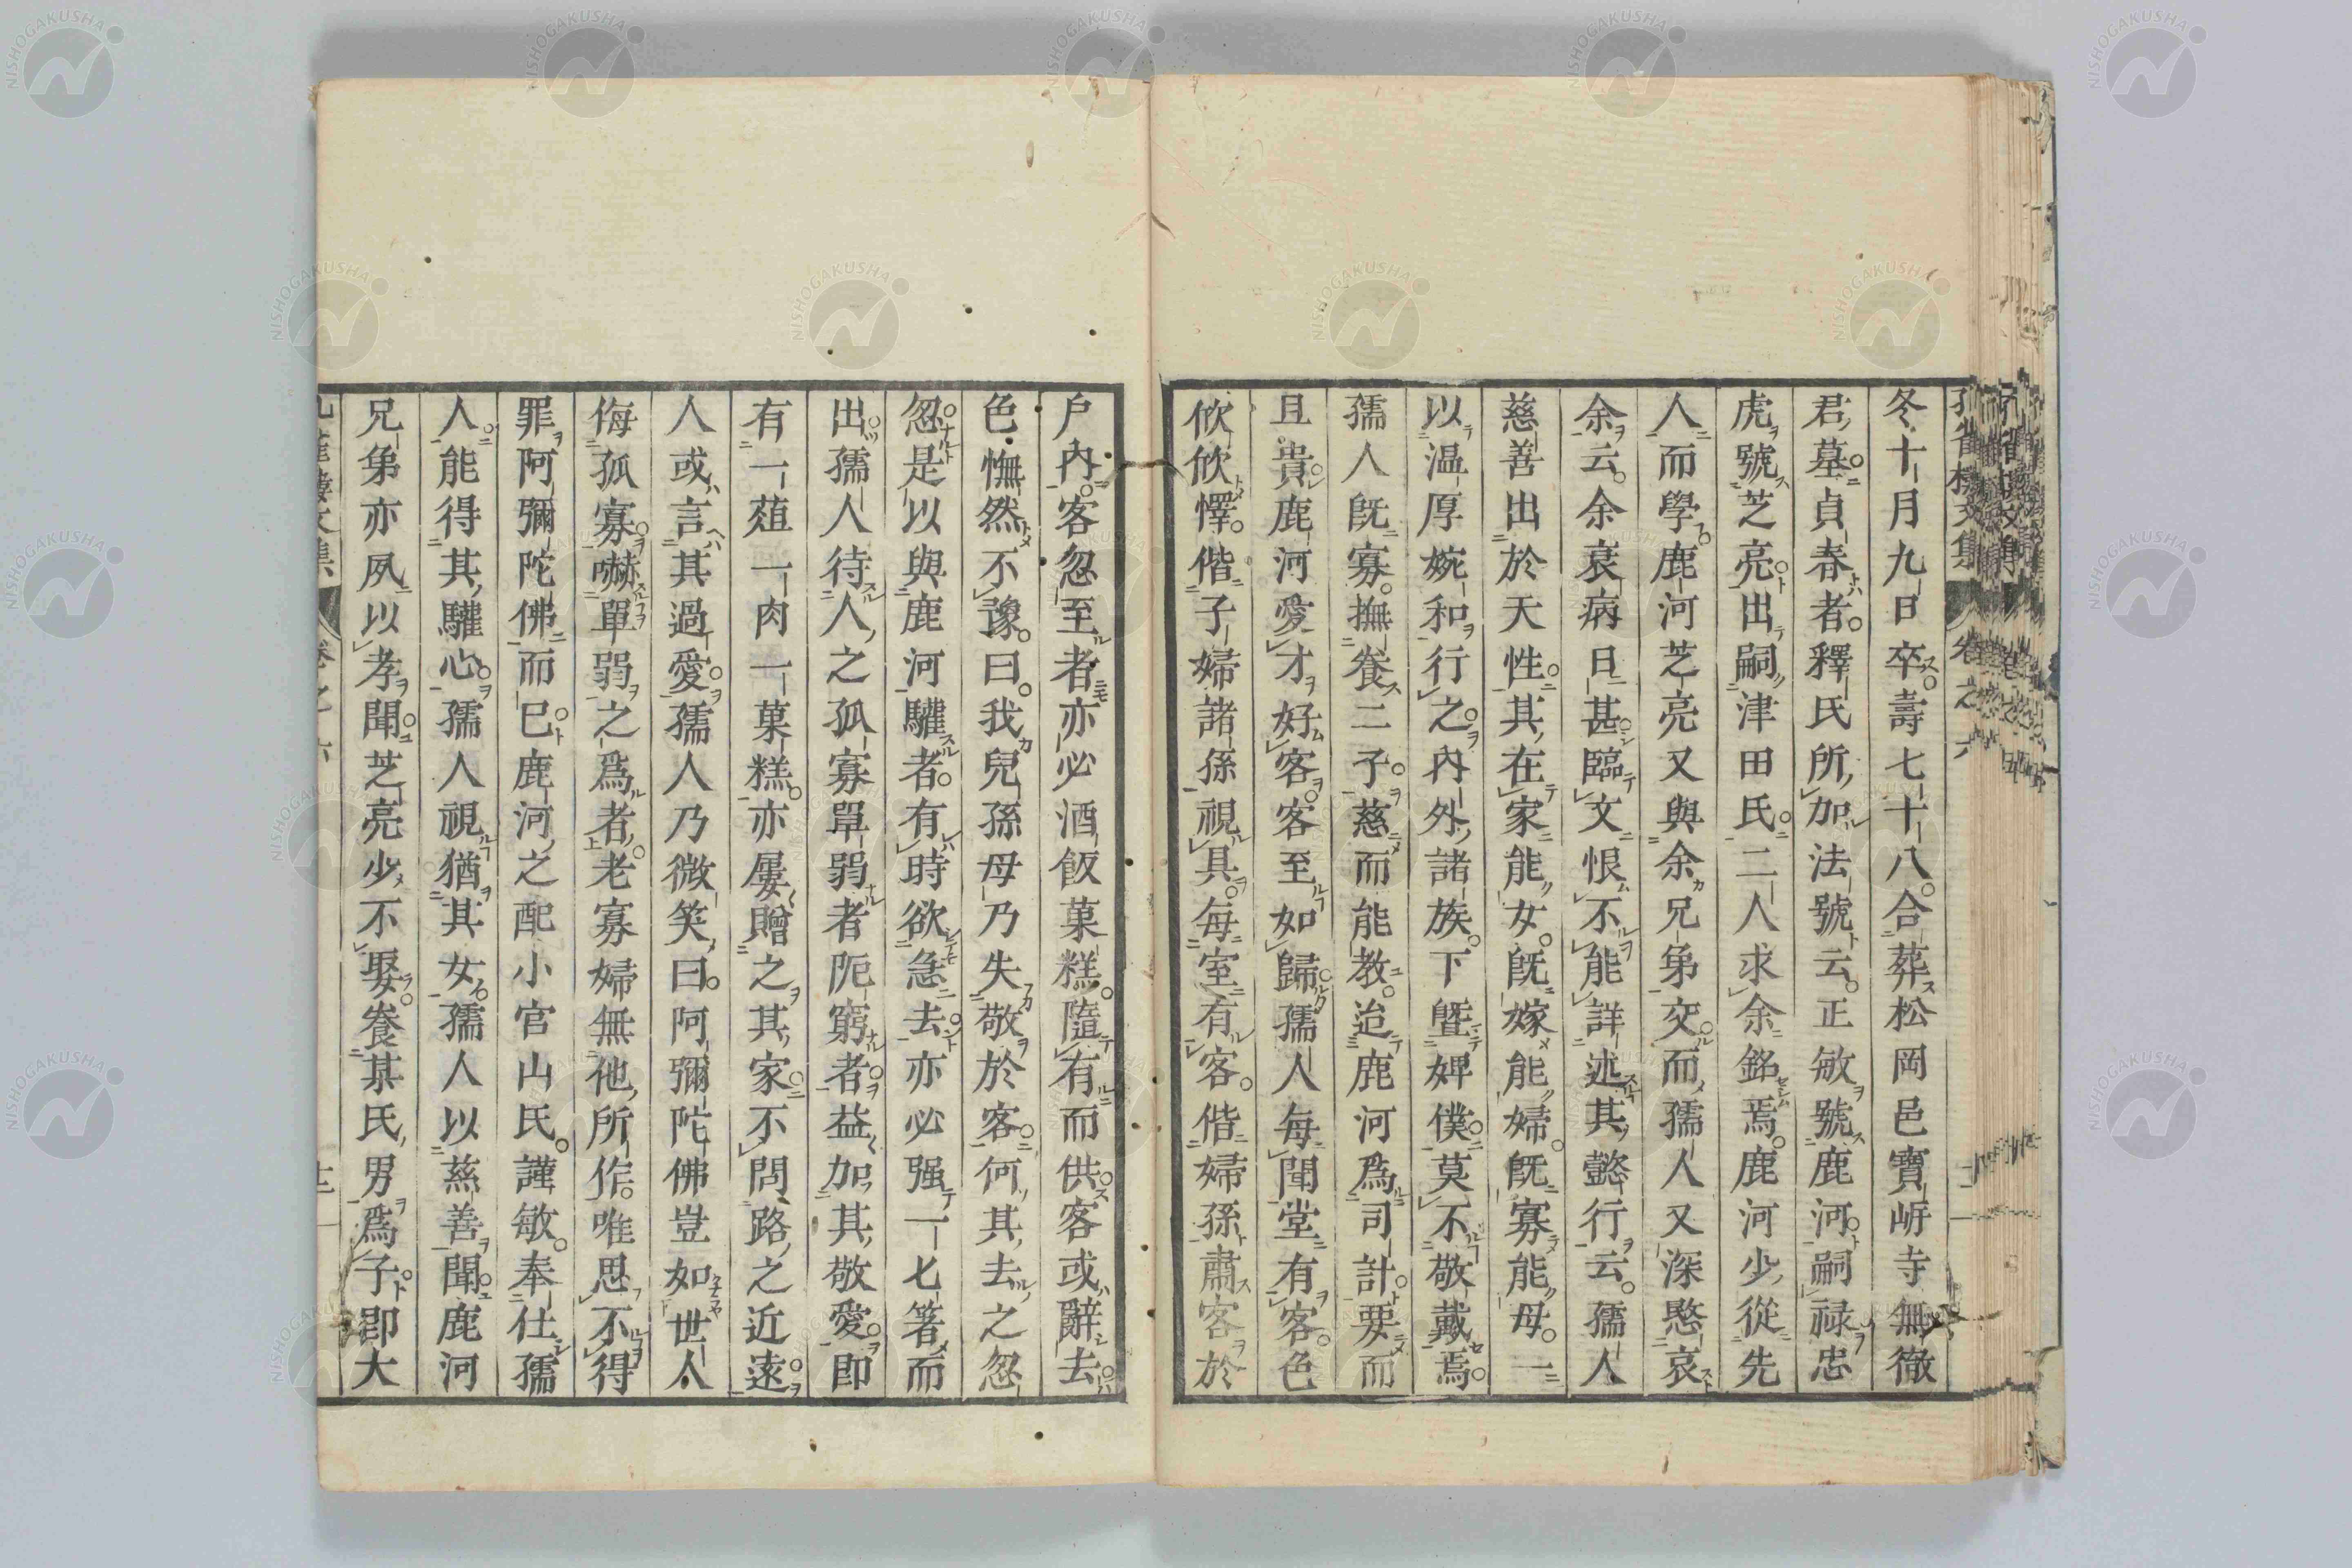 冬十月九日卒壽七十八合葬松岡邑寶㟁寺無徹
君墓貞春者釋氏所加法號云正敏號鹿河嗣祿忠
虎號芝亮出嗣津田氏二人求余銘焉鹿河少從先
人而學鹿河芝亮又與余兄弟交而孺人又深愍哀
余云余衰病日甚臨文恨不能詳述其懿行云孺人
慈善出於天性其在家能女既嫁能婦既寡能母一
以溫厚婉和行之內外諸族下曁婢僕莫不敬戴焉
孺人既寡撫養二子慈而能教迨鹿河為司計要而
且貴鹿河愛才好客客至如歸孺人每聞堂有客色
欣欣懌偕子婦諸孫視具每室有客偕婦孫肅客於
戶內客忽至者亦必酒飯菓糕隨有而供客或辭去
色憮然不豫曰我兒孫母乃失敬於客何其去之忽
忽是以與鹿河驩者有時欲急去亦必强一七箸而
出孺人待人之孤寡單弱者阨窮者益加其敬愛即
有一葅一肉一菓糕亦屢贈之其家不問路之近遠
人或言其過愛孺人乃微笑曰阿彌陀佛豈如世人
侮孤寡嚇單弱之為者老寡婦無他所作唯思不得
罪阿彌陀佛而已鹿河之配小官山氏謹敏奉仕孺
人能得其驩心孺人視猶其女孺人以慈善聞鹿河
兄弟亦夙以孝聞芝亮少不娶養某氏男為子即大